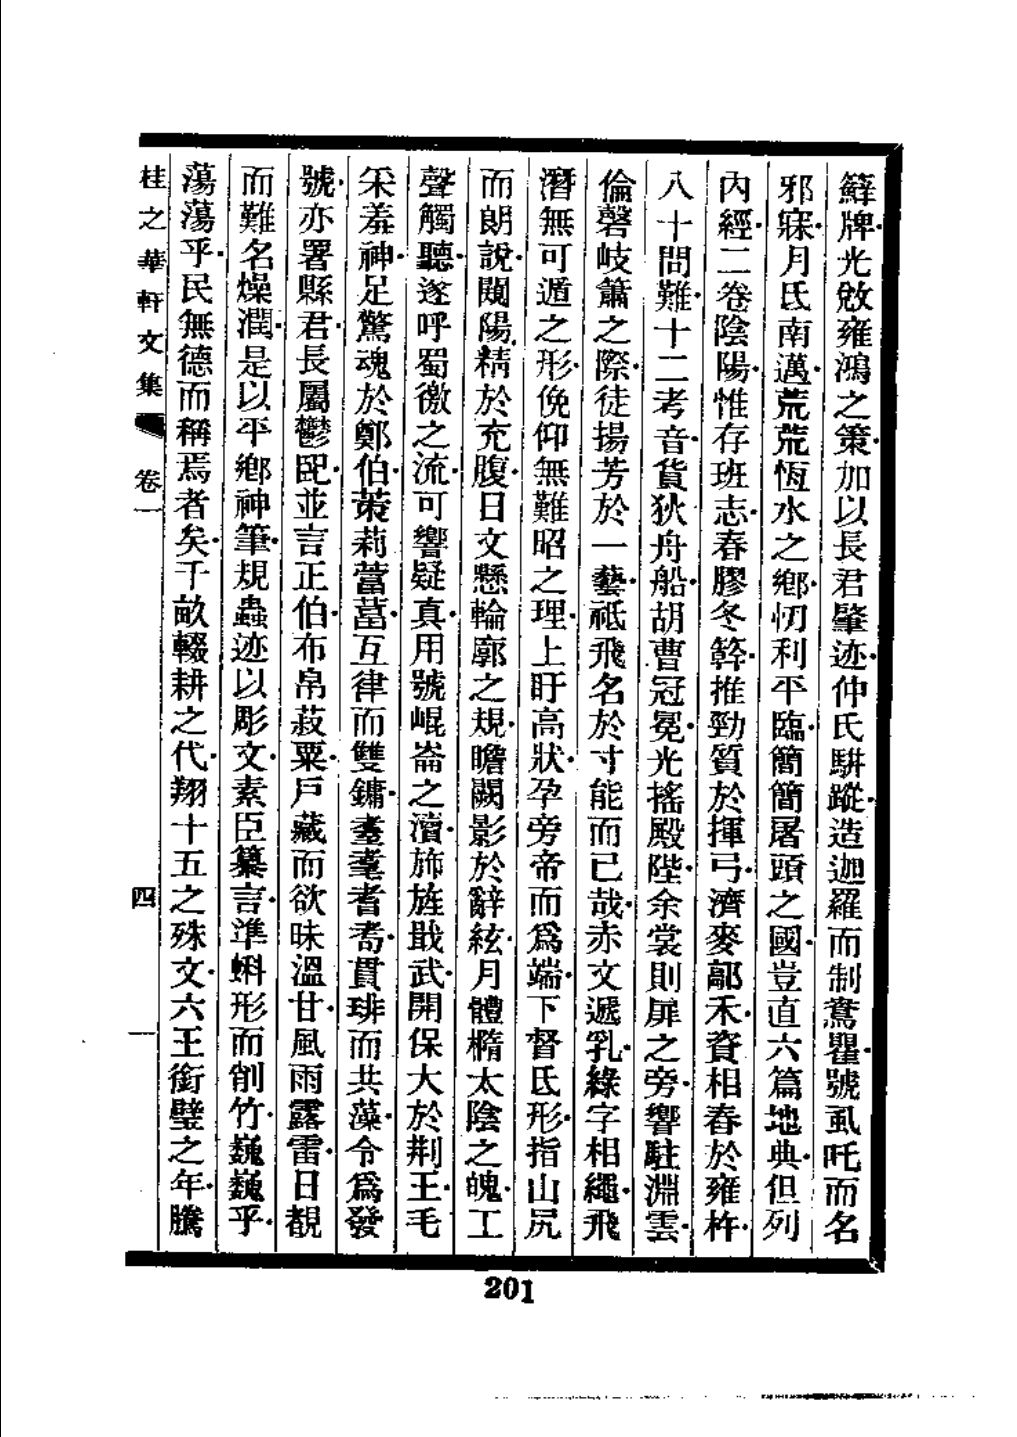 鮮牌光斂雍鴻之策加以長君肇迹仲氏駢蹤造迦羅而制鴦瞿號虱吒而名
邪寐月氏南邁荒荒恆水之鄉忉利平臨簡簡屠頭之國豈直六篇地典但列
內經二卷陰陽惟存班志春膠冬榦推勁質於揮弓濟麥鄗禾資相春於雍杵
八十問難十二考音貨狄舟船胡曹冠冕光搖殿陛余裳則扉之旁響駐淵雲
倫磬岐簫之際徒揚芳於一藝祗飛名於寸能而已哉赤文遞乳綠字相繩飛
潛無可遁之形俛仰無難昭之理上盱高狀孕旁帝而爲端下督氏形指山尻
而朗說閱陽精於充腹日文懸輪廓之規瞻闕影於辭絃月體橢太陰之魄工
聲觸聽遂呼蜀徼之流可響疑真用號崐崙之瀆斾旌戢武開保大於荆王毛
采羞神足驚魂於鄭伯茦莿葍䔰互律而雙鏞耋耄耆耇貫琲而共藻令爲發
號亦署縣君長屬鬱郘並言正伯布帛菽粟戶藏而欲昧溫甘風雨露雷日覩
而難名燥潤是以平鄉神筆規蟲迹以彫文素臣纂言準蝌形而削竹巍巍乎
蕩蕩乎民無德而稱焉者矣千畝輟耕之代翔十五之殊文六王銜璧之年騰
桂之華軒文集 卷一 四
201